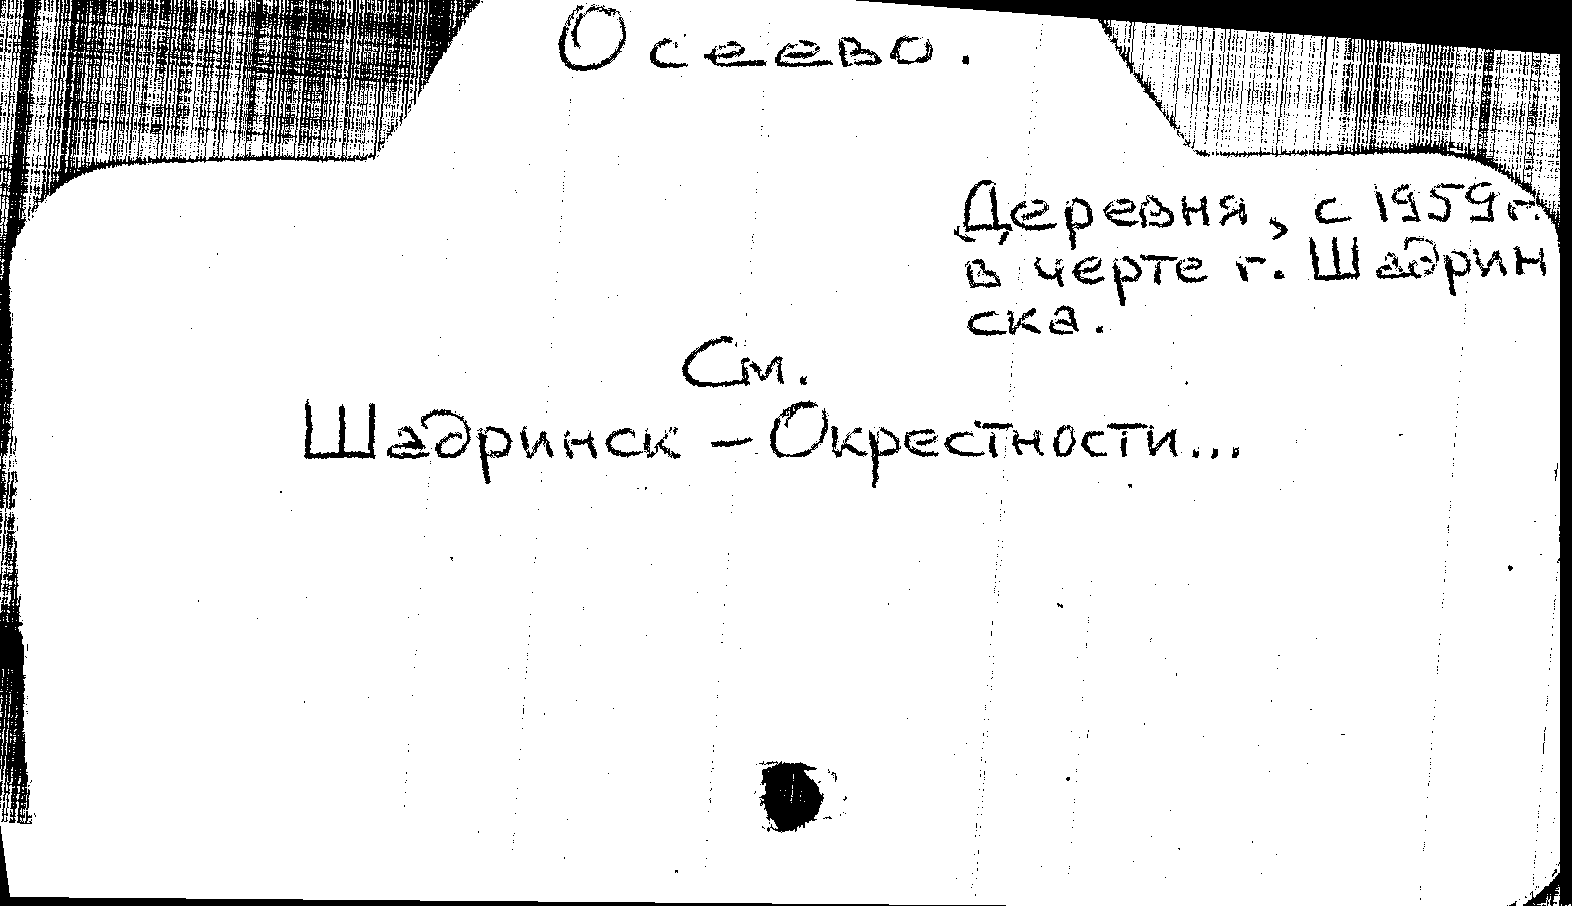 Осеево.
Деревня, с 1959г.
в черте г. Шадрин
ска.
См.
Шадринск - Окрестности...